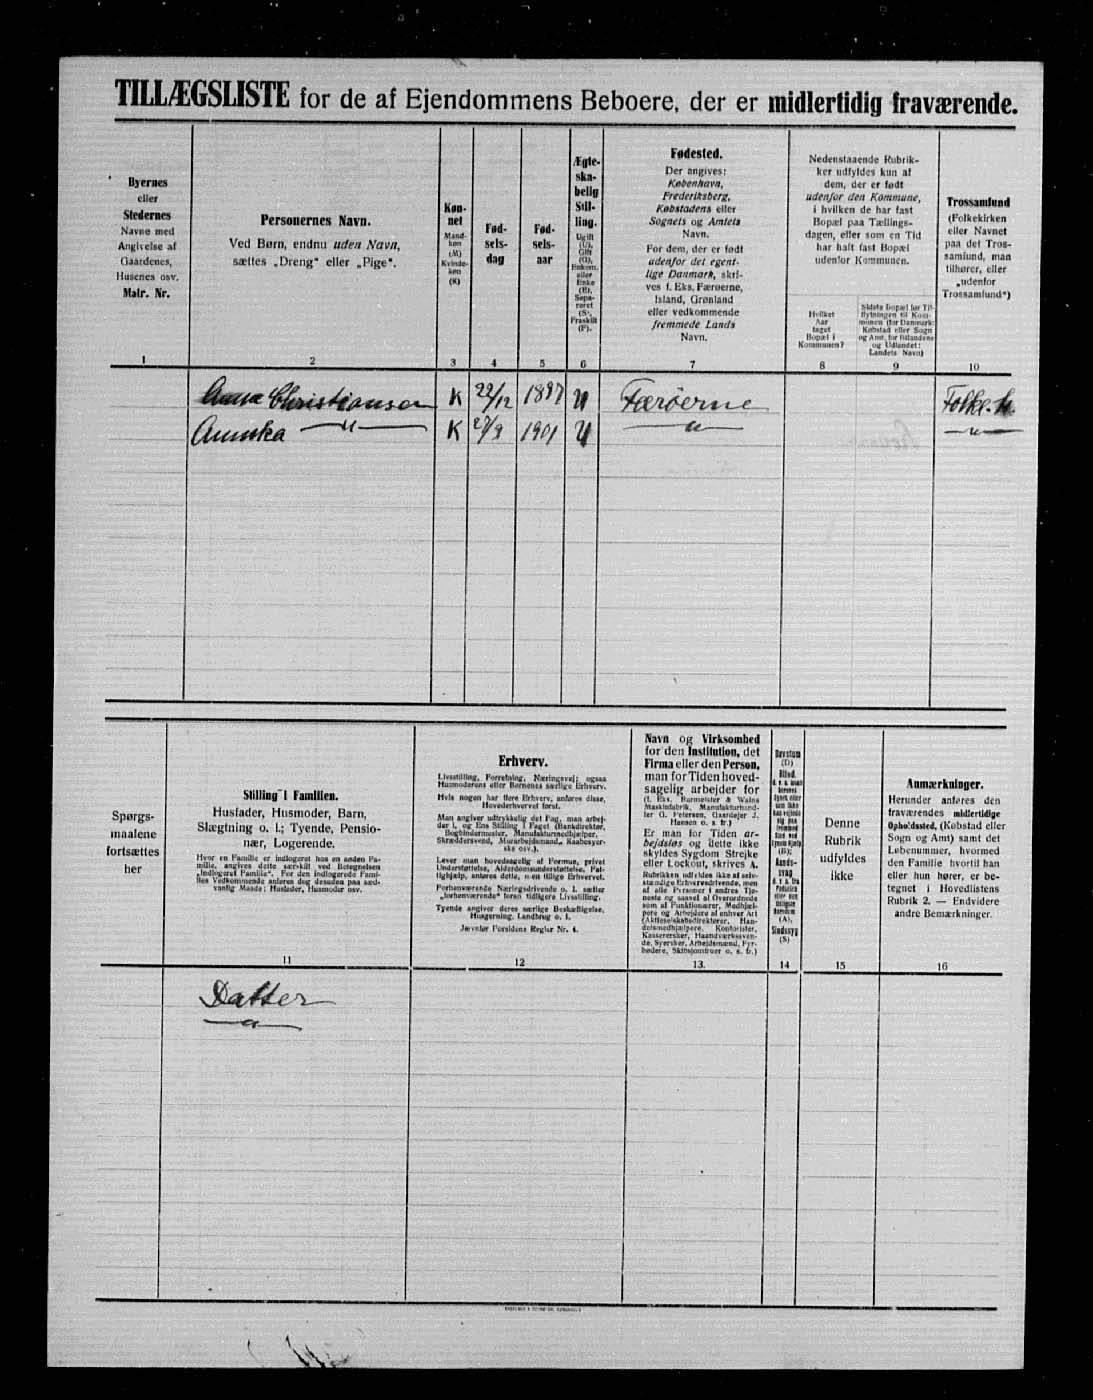 TILLÆGSLISTE for de af Ejendommens Beboere, der er midlertidig fraværende.
Byernes
eller
Stedernes
Navne med
Angivelse af
Gaardenes,
Husenes osv.
Matr. Nr.
Personernes Navn.
Ved Børn, endnu uden Navn,
sættes „Dreng“ eller „Pige“.
Køn-
net
Mand-
køn
(M)
Kvinde-
køn
(K)
Fød-
sels-
dag
Fød-
sels-
aar
Ægte-
ska-
belig
Stil-
ling.
Ugift
(U),
Gift
(G),
Enkem.
eller
Enke
(E),
Sepa-
reret
(S),
Fraskilt
(F).
Fødested.
Der angives:
København,
Frederiksberg,
Købstadens eller
Sognets og Amtets
Navn.
For dem, der er født
udenfor det egent-
lige Danmark, skri-
ves f. Eks. Færøerne,
Island, Grønland
eller vedkommende
fremmede Lands
Navn.
Nedenstaaende Rubrik-
ker udfyldes kun af
dem, der er født
udenfor den Kommune,
i hvilken de har fast
Bopæl paa Tællings-
dagen, eller som en Tid
har haft fast Bopæl
udenfor Kommunen.
Hvilket
Aar
taget
Bopæl i
Kommunen?
Sidste Bopæl før Til-
flytningen til Kom-
munen (for Danmark:
Købstad eller Sogn
og Amt, for Bilandene
og Udlandet:
Landets Navn)
Trossamfund
(Folkekirken
eller Navnet
paa det Tros-
samfund, man
tilhører, eller
„udenfor
Trossamfund“)
1 2 3 4 5 6 7 8 9 10
Anna Christiansen K 22/12 1897 U Færøerne Folke.k.
Annika —„— K 27/9 1901 U —„— —„—
Spørgs-
maalene
fortsættes
her
Stilling i Familien.
Husfader, Husmoder, Barn,
Slægtning o. l.; Tyende, Pensio-
nær, Logerende.
Hvor en Familie er indlogeret hos en anden Fa-
milie, angives dette særskilt ved Betegnelsen
„Indlogeret Familie“. For den indlogerede Fami-
lies Vedkommende anføres dog desuden paa sæd-
vanlig Maade: Husfader, Husmoder osv.
Erhverv.
Livsstilling, Forretning, Næringsvej; ogsaa
Husmoderens eller Børnenes særlige Erhverv.
Hvis nogen har flere Erhverv, anføres disse,
Hovederhvervet først.
Man angiver udtrykkelig det Fag, man arbej-
der i, og Ens Stilling i Faget (Bankdirektør,
Bogbindermester, Manufakturmedhjælper,
Skræddersvend, Murarbejdsmand, Kaabesyer-
ske osv.).
Lever man hovedsagelig af Formue, privat
Understøttelse, Alderdomsunderstøttelse, Fat-
tighjælp, anføres dette, men tillige Erhvervet.
Forhenværende Næringsdrivende o. l. sætter
„forhenværende“ foran tidligere Livsstilling.
Tyende angiver deres særlige Beskæftigelse,
Husgerning, Landbrug o. l.
Jævnfør Forsidens Regler Nr. 4.
Navn og Virksomhed
for den Institution, det
Firma eller den Person,
man for Tiden hoved-
sagelig arbejder for
(f. Eks. Burmeister & Wains
Maskinfabrik, Manufakturhand-
ler G. Petersen, Gaardejer J.
Hansen o. s. fr.)
Er man for Tiden ar-
bejdsløs og dette ikke
skyldes Sygdom Strejke
eller Lockout, skrives A.
Rubrikken udfyldes ikke af selv-
stændige Erhvervsdrivende, men
af alle Personer i andres Tje-
neste og saavel af Overordnede
som af Funktionærer, Medhjæl-
pere og Arbejdere af enhver Art
(Aktieselskabsdirektører, Han-
delsmedhjælpere, Kontorister,
Kassererske, Haandværkssven-
de, Syersker, Arbejdsmænd, Fyr-
bødere, Skibsjomfruer o. s. fr.)
Døvstum
(D)
Blind,
Aands-
svag
(A),
Sindssyg
(S)
Denne
Rubrik
udfyldes
ikke
Anmærkninger.
Herunder anføres den
fraværendes midlertidige
Opholdssted, (Købstad eller
Sogn og Amt) samt det
Løbenummer, hvormed
den Familie hvortil han
eller hun hører, er be-
tegnet i Hovedlistens
Rubrik 2. — Endvidere
andre Bemærkninger.
11 12 13. 14 15 16
Datter
—„—